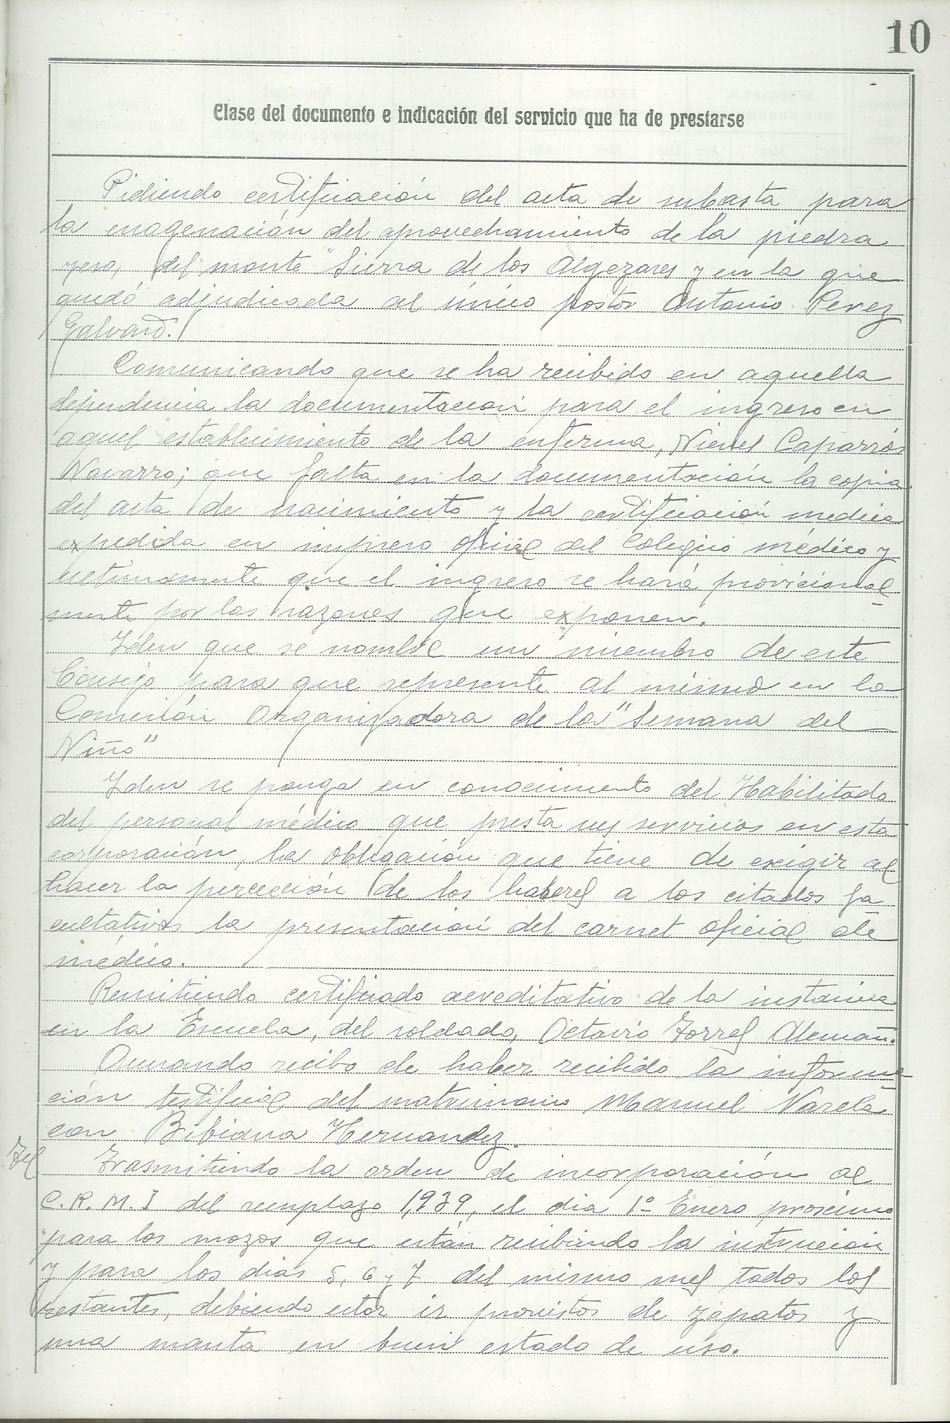 10
Clase del documento e indicación del servicio que ha de prestarse
Pidiendo certificación del acta de subasta para
la enagenación del aprovechamiento de la piedra
yeso, del monte "Sierra de los Algezares y en la que
quedó adjudicada al único postor Antonio Perez
Galvañ.
Comunicando que se ha recibido en aquella
dependencia la documentación para el ingreso en
aquel establecimiento de la enferma, Nieves Caparrós
Navarro; que falta en la documentación la copia
del acta de nacimiento y la certificación medica
expedida en impreso oficial del Colegio médico y
ultimamente que el ingreso se hará provicional
mente por las razones que exponen.
Iden que se nombre un miembro de este
Consejo para que represente al mismo en la
Comisión Organizadora de la "Semana del
Niño"
Iden se ponga en conocimiento del Habilitado
del personal médico que presta sus servicios en esta
corporación, la obligación que tiene de exigir al
hacer la percección de los haberes a los citados fa
cultativos la presentación del carnet oficial de
médico.
Remitiendo certificado acreditativo de la instancia
en la Escuela, del soldado, Octavio Torres Alemañ.
Acusando recibo de haber recibido la informa
ción testifical del matrimonio Manuel Varela
con Bibiana Hernandez.
Tel
Trasmitiendo la orden de incorporación al
C.R.M.I del remplazo 1,939, el dia 1º Enero proximo
para los mozos que están recibiendo la instrucion
y para los dias 5, 6 y 7 del mismo mes todos los
restantes, debiendo estar ir provistos de zapatos y
una manta en buen estado de uso.